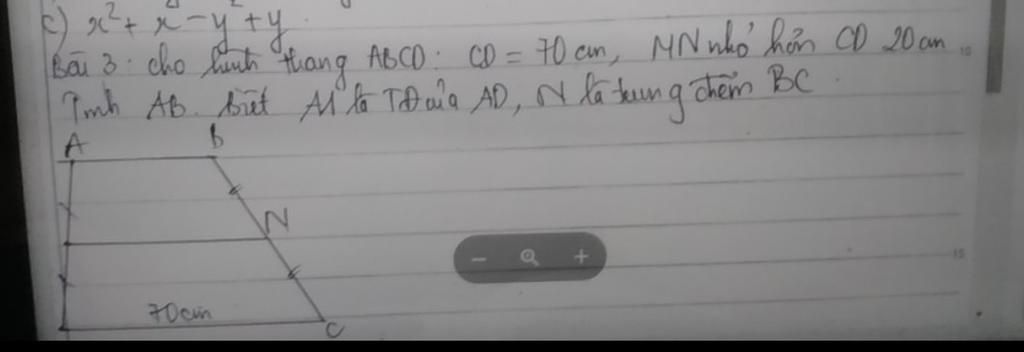 c) x² + x - y² + y
Bài 3: cho hình thang ABCD: CD = 70 cm, MN nhỏ hơn CD 20cm
Tính AB. biết M là TĐ của AD, N là trung điểm BC.
A B
N
70cm
C